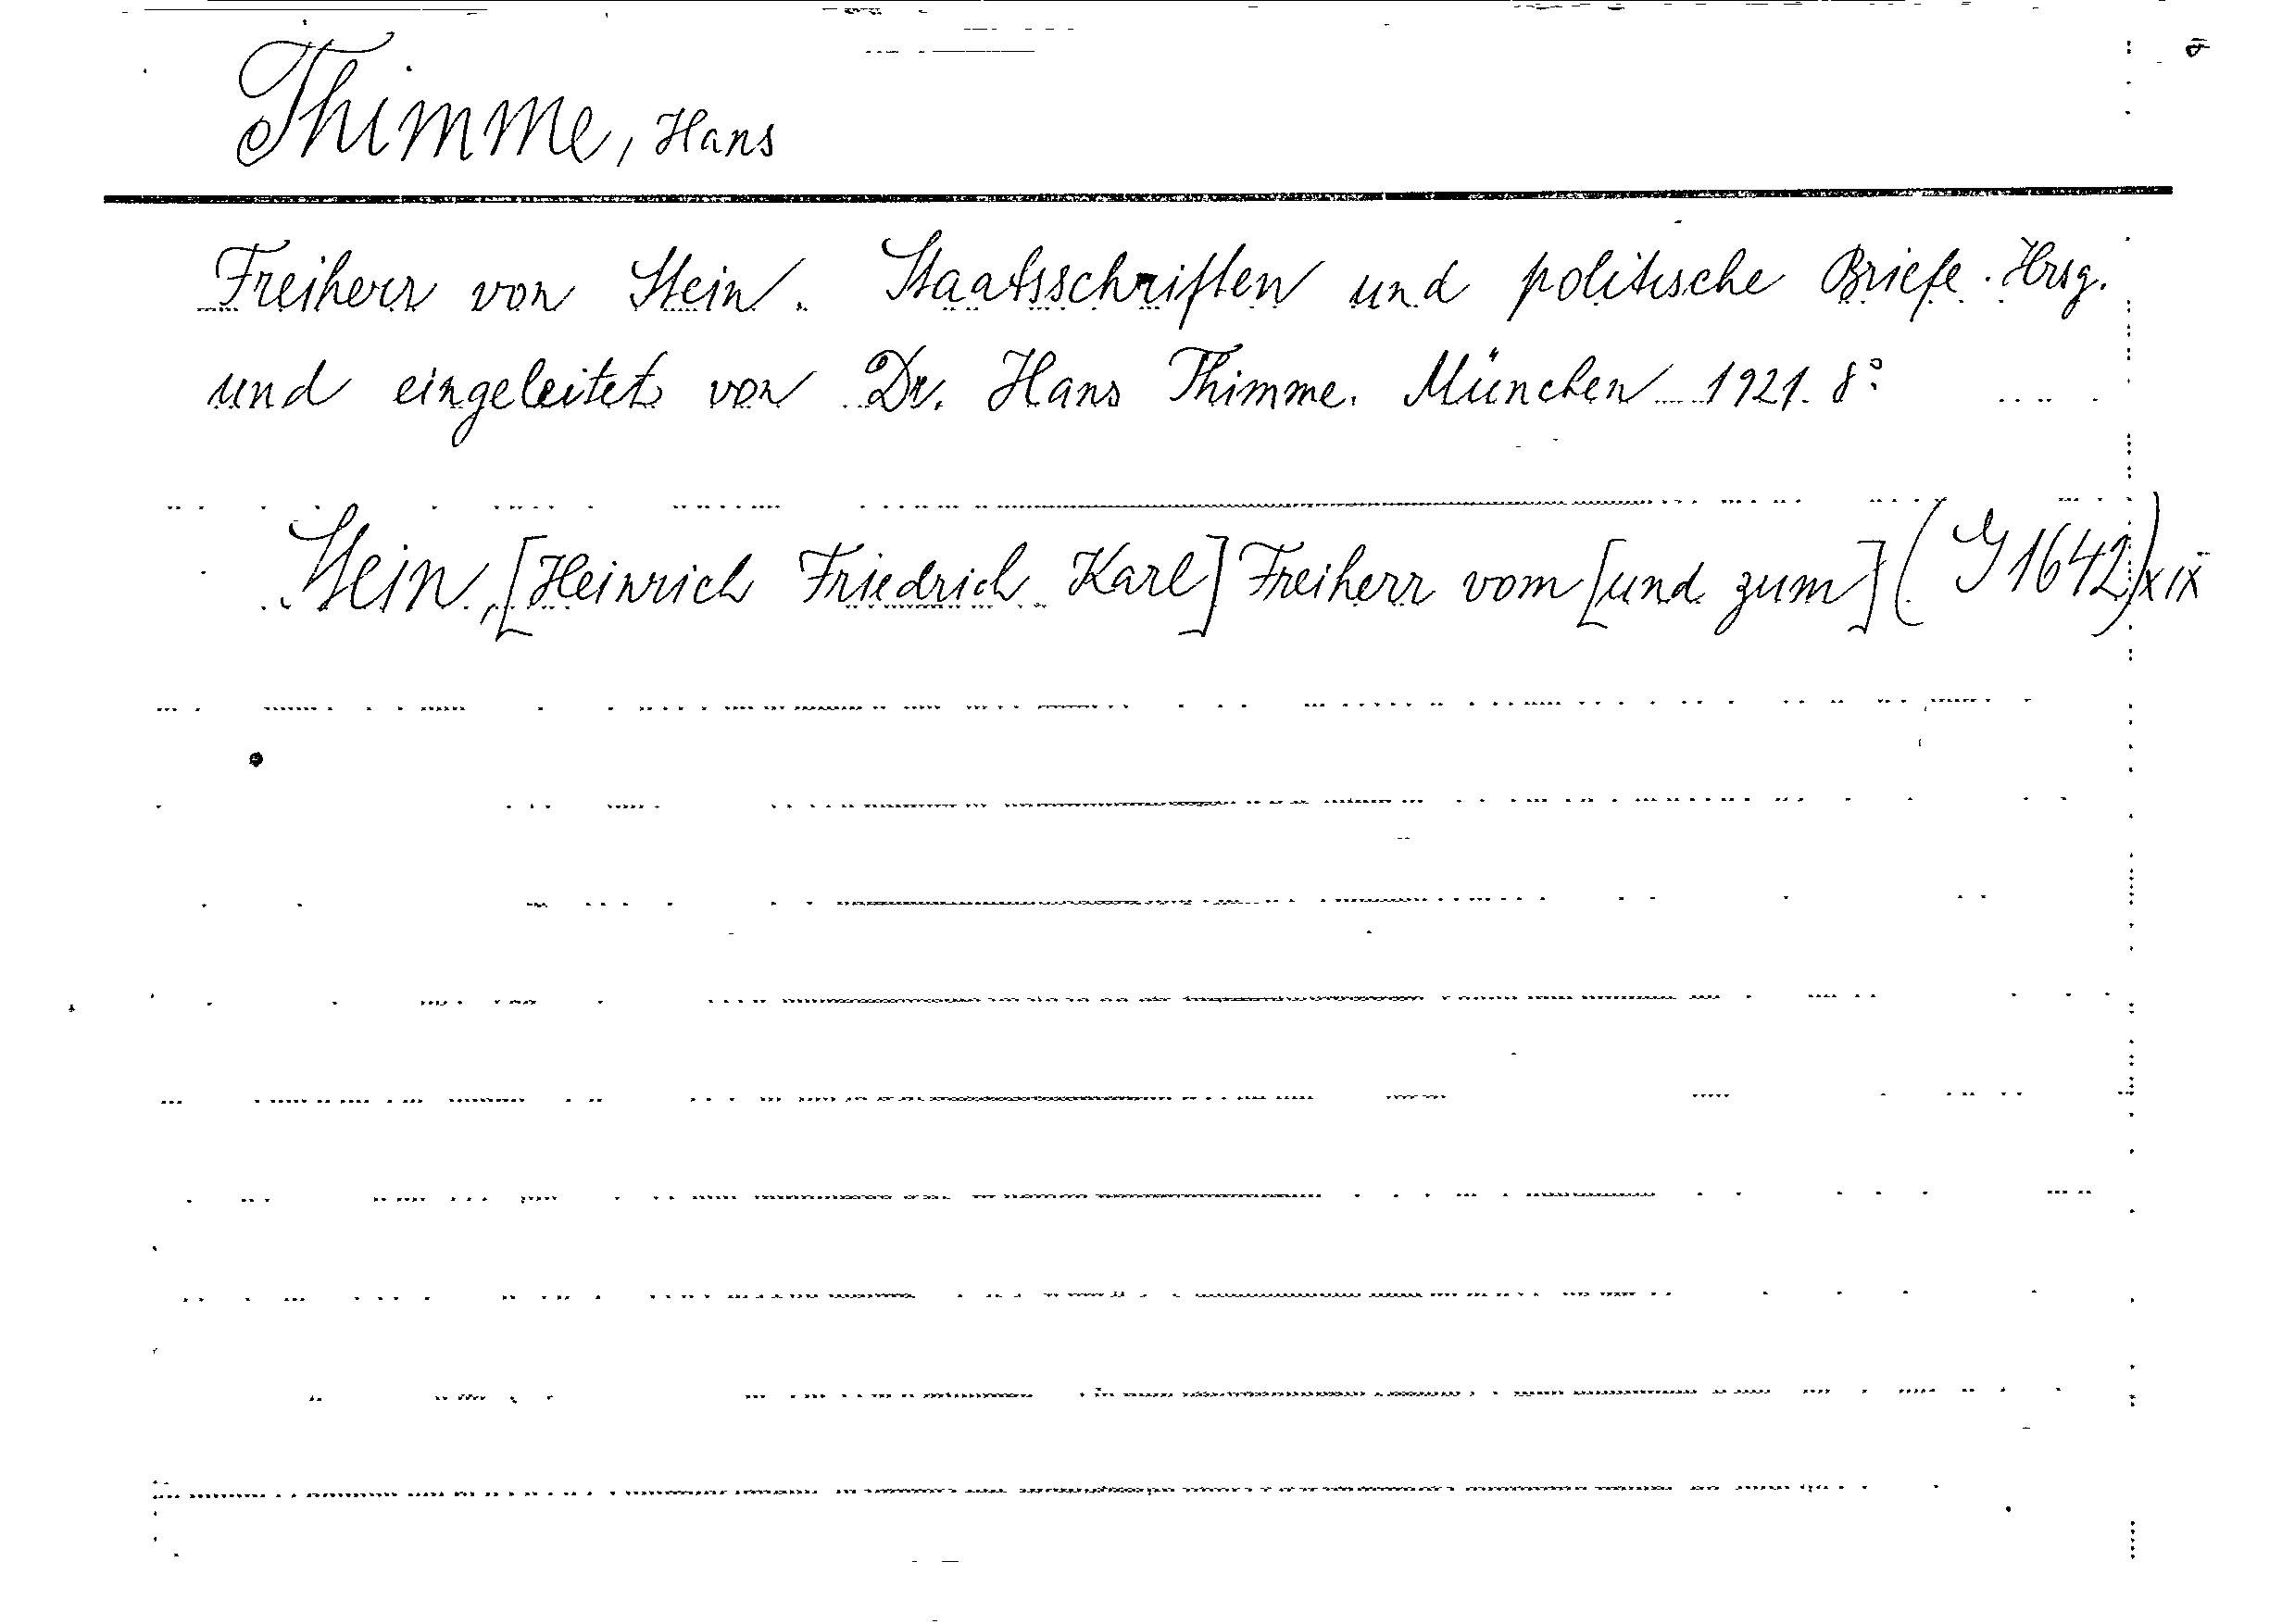 Thimme, Hans
Freiherr von Stein. Staatsschriften und politische Briefe. Hrsg.
und eingeleitet von Dr. Hans Thimme. München 1921. 8°
Stein, [Heinrich Friedrich Karl] Freiherr vom [und zum] (Y 1642) XIX